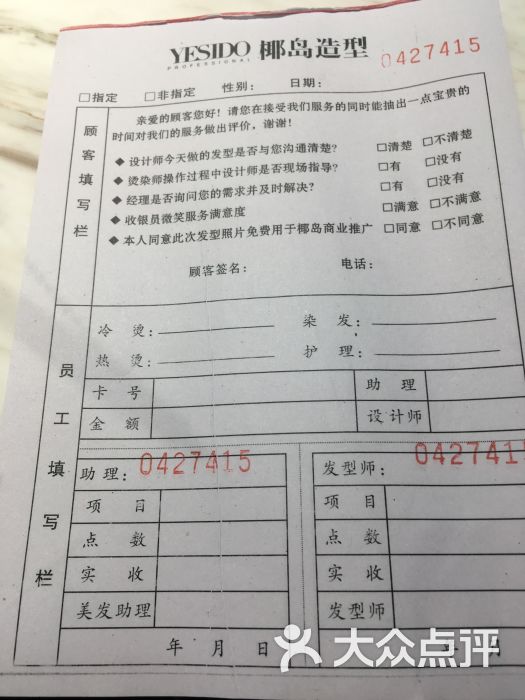 YESIDO 椰岛造型
PROFESSIONAL
0427415
□指定 □非指定 性别： 日期：
顾客填写栏
亲爱的顾客您好！请您在接受我们服务的同时能抽出一点宝贵的
时间对我们的服务做出评价，谢谢！
◆ 设计师今天做的发型是否与您沟通清楚？ □清楚 □不清楚
◆ 烫染师操作过程中设计师是否现场指导？ □有 □没有
◆ 经理是否询问您的需求并及时解决？ □有 □没有
◆ 收银员微笑服务满意度 □满意 □不满意
◆ 本人同意此次发型照片免费用于椰岛商业推广 □同意 □不同意
顾客签名： 电话：
员工填写栏
冷 烫： 染 发：
热 烫： 护 理：
卡 号 助 理
金 额 设计师
助理：0427415 发型师：042741
项 目 项 目
点 数 点 数
实 收 实 收
美发助理 发型师
年 月 日 年 月
大众点评